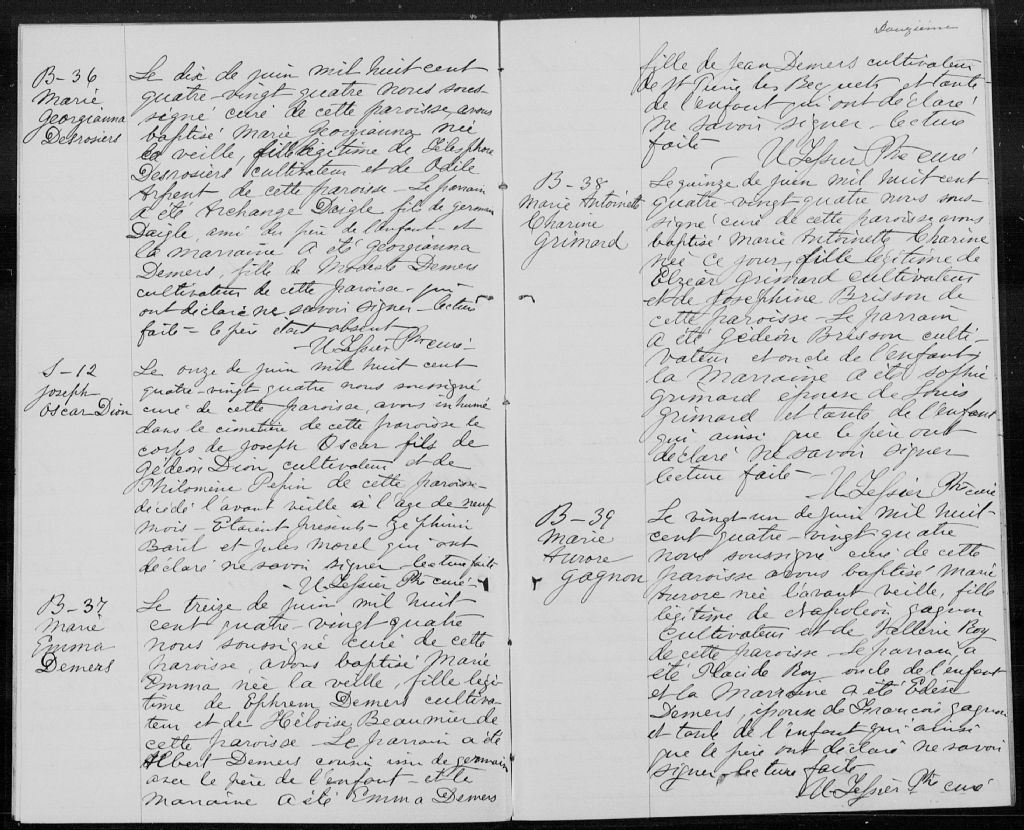 B-36
Marie
Georgianna
Desrosiers
Le dix de juin mil huit cent
quatre-vingt quatre nous sous-
signé curé de cette paroisse, avons
baptisé Marie Georgianna née
la veille, fille légitime de Télesphore
Desrosiers cultivateur et de Odile
Arpent de cette paroisse - Le parrain
a été Archange Daigle fils de germain
Daigle, ami du père de l'enfant - et
la marraine a été georgianna
Demers, fille de Modeste Demers
cultivateur de cette paroisse - qui
ont déclaré ne savoir signer - lecture
faite - le père étant absent
- U Lessier Ptre curé -
S-12
Joseph
Oscar Dion
Le onze de juin mil huit cent
quatre-vingt quatre nous soussigné
curé de cette paroisse, avons inhumé
dans le cimetière de cette paroisse le
corps de Joseph Oscar fils de
Gédéon Dion, cultivateur et de
Philomène Pepin de cette paroisse -
décédé l'avant veille à l'âge de neuf
mois - Etaient présents - Zephirin
Baril et Jules Morel qui ont
déclaré ne savoir signer - lecture faite
- U Lessier Ptre curé -
B-37
Marie
Emma
Demers
Le treize de juin mil huit
cent quatre-vingt quatre
nous soussigné curé de cette
paroisse, avons baptisé Marie
Emma née la veille, fille légi-
time de Ephrem Demers cultiva-
teur et de Héloïse Beaumier de
cette paroisse - Le parrain a été
Albert Demers cousin issu de germain
avec le père de l'enfant - et la
marraine a été Emma Demers
Douzième
fille de Jean Demers cultivateur
de St Pierre les Becquets et tante
de l'enfant qui ont déclaré
ne savoir signer - lecture
faite -
- U Lessier Ptre curé
B-38
Marie Antoinette
Charine
Grimard
Le quinze de juin mil huit cent
quatre-vingt-quatre nous sous-
signé curé de cette paroisse avons
baptisé Marie Antoinette Charine
née ce jour, fille légitime de
Elzéar Grimard cultivateur
et de Josephine Brisson de
cette paroisse - Le parrain
a été Gédéon Brisson culti-
vateur et oncle de l'enfant
la Marraine a été Sophie
Grimard épouse de Louis
Grimard et tante de l'enfant
qui ainsi que le père ont
déclaré ne savoir signer
lecture faite -
- U Lessier Ptre curé
B-39
Marie
Aurore
Gagnon
Le vingt un de juin mil huit-
cent quatre-vingt quatre
nous soussigné curé de cette
paroisse avons baptisé Marie
Aurore née l'avant veille, fille
légitime de Napoléon Gagnon
cultivateur et de Vallérie Roy
de cette paroisse - Le parrain a
été Placide Roy oncle de l'enfant
et la Marraine a été
Demers, épouse de François Gagnon
et tante de l'enfant qui ainsi
que le père ont déclaré ne savoir
signer, lecture faite
U Lessier Ptre curé